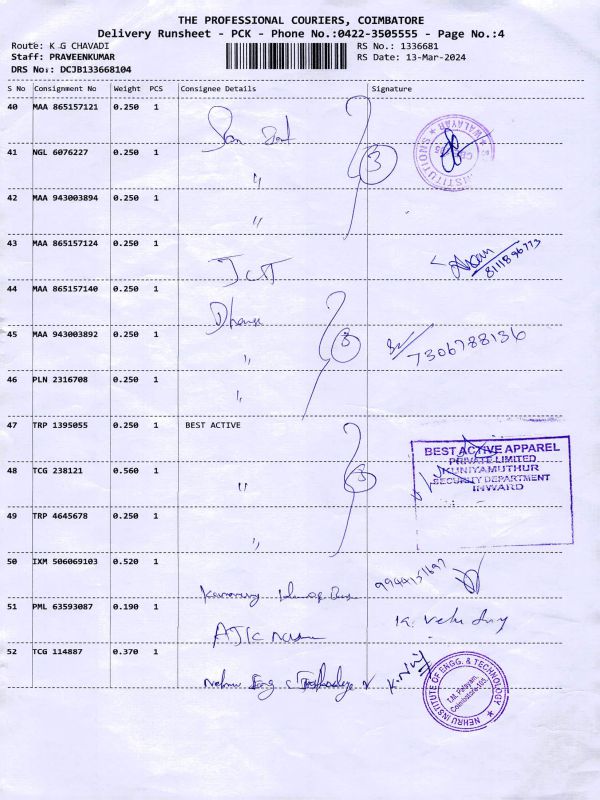 THE PROFESSIONAL COURIERS, COIMBATORE
Delivery Runsheet - PCK - Phone No.:0422-3505555 - Page No.:4
Route: K G CHAVADI RS No.: 1336681
Staff: PRAVEENKUMAR RS Date: 13-Mar-2024
DRS No.: DCJB133668104
S No Consignment No Weight PCS Consignee Details Signature
40 MAA 865157121 0.250 1
41 NGL 6076227 0.250 1 "
3
42 MAA 943003894 0.250 1 "
43 MAA 865157124 0.250 1
8111896773
44 MAA 865157140 0.250 1
45 MAA 943003892 0.250 1 "
3
7306788136
46 PLN 2316708 0.250 1 "
47 TRP 1395055 0.250 1 BEST ACTIVE
BEST ACTIVE APPAREL
PRIVATE LIMITED
KUNIYAMUTHUR
SECURITY DEPARTMENT
INWARD
48 TCG 238121 0.560 1 "
3
49 TRP 4645678 0.250 1 "
50 IXM 506069103 0.520 1
51 PML 63593087 0.190 1
52 TCG 114887 0.370 1
NEHRU INSTITUTE OF ENGG. & TECHNOLOGY
T.M. Palayam,
Coimbatore-105.